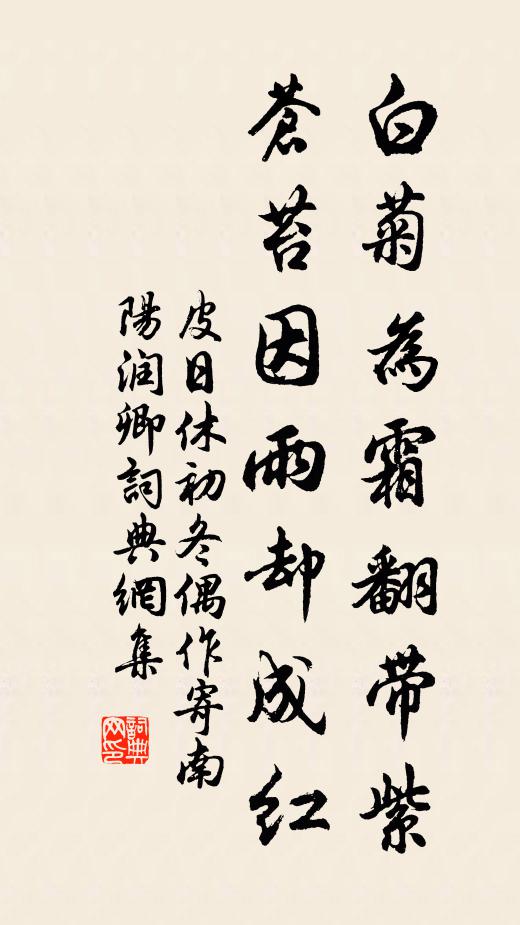 白菊為霜翻带紫
蒼苔因雨却成红
皮日休初冬偶作寄南
陽润卿詞典網集
詞典网印